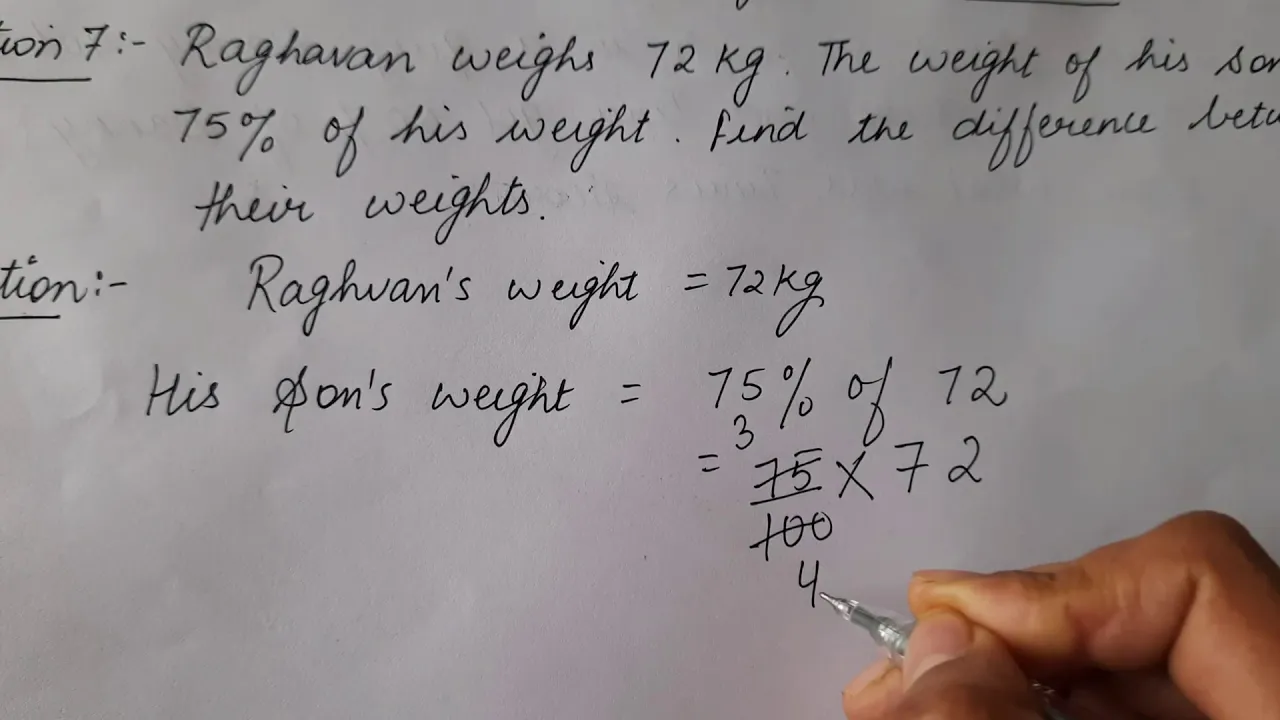 tion 7:- Raghavan weighs 72 kg. The weight of his son
75% of his weight. Find the difference betw
their weights.
tion:- Raghvan's weight = 72 kg
His Son's weight = 75% of 72
3
= 75 X 72
100
4